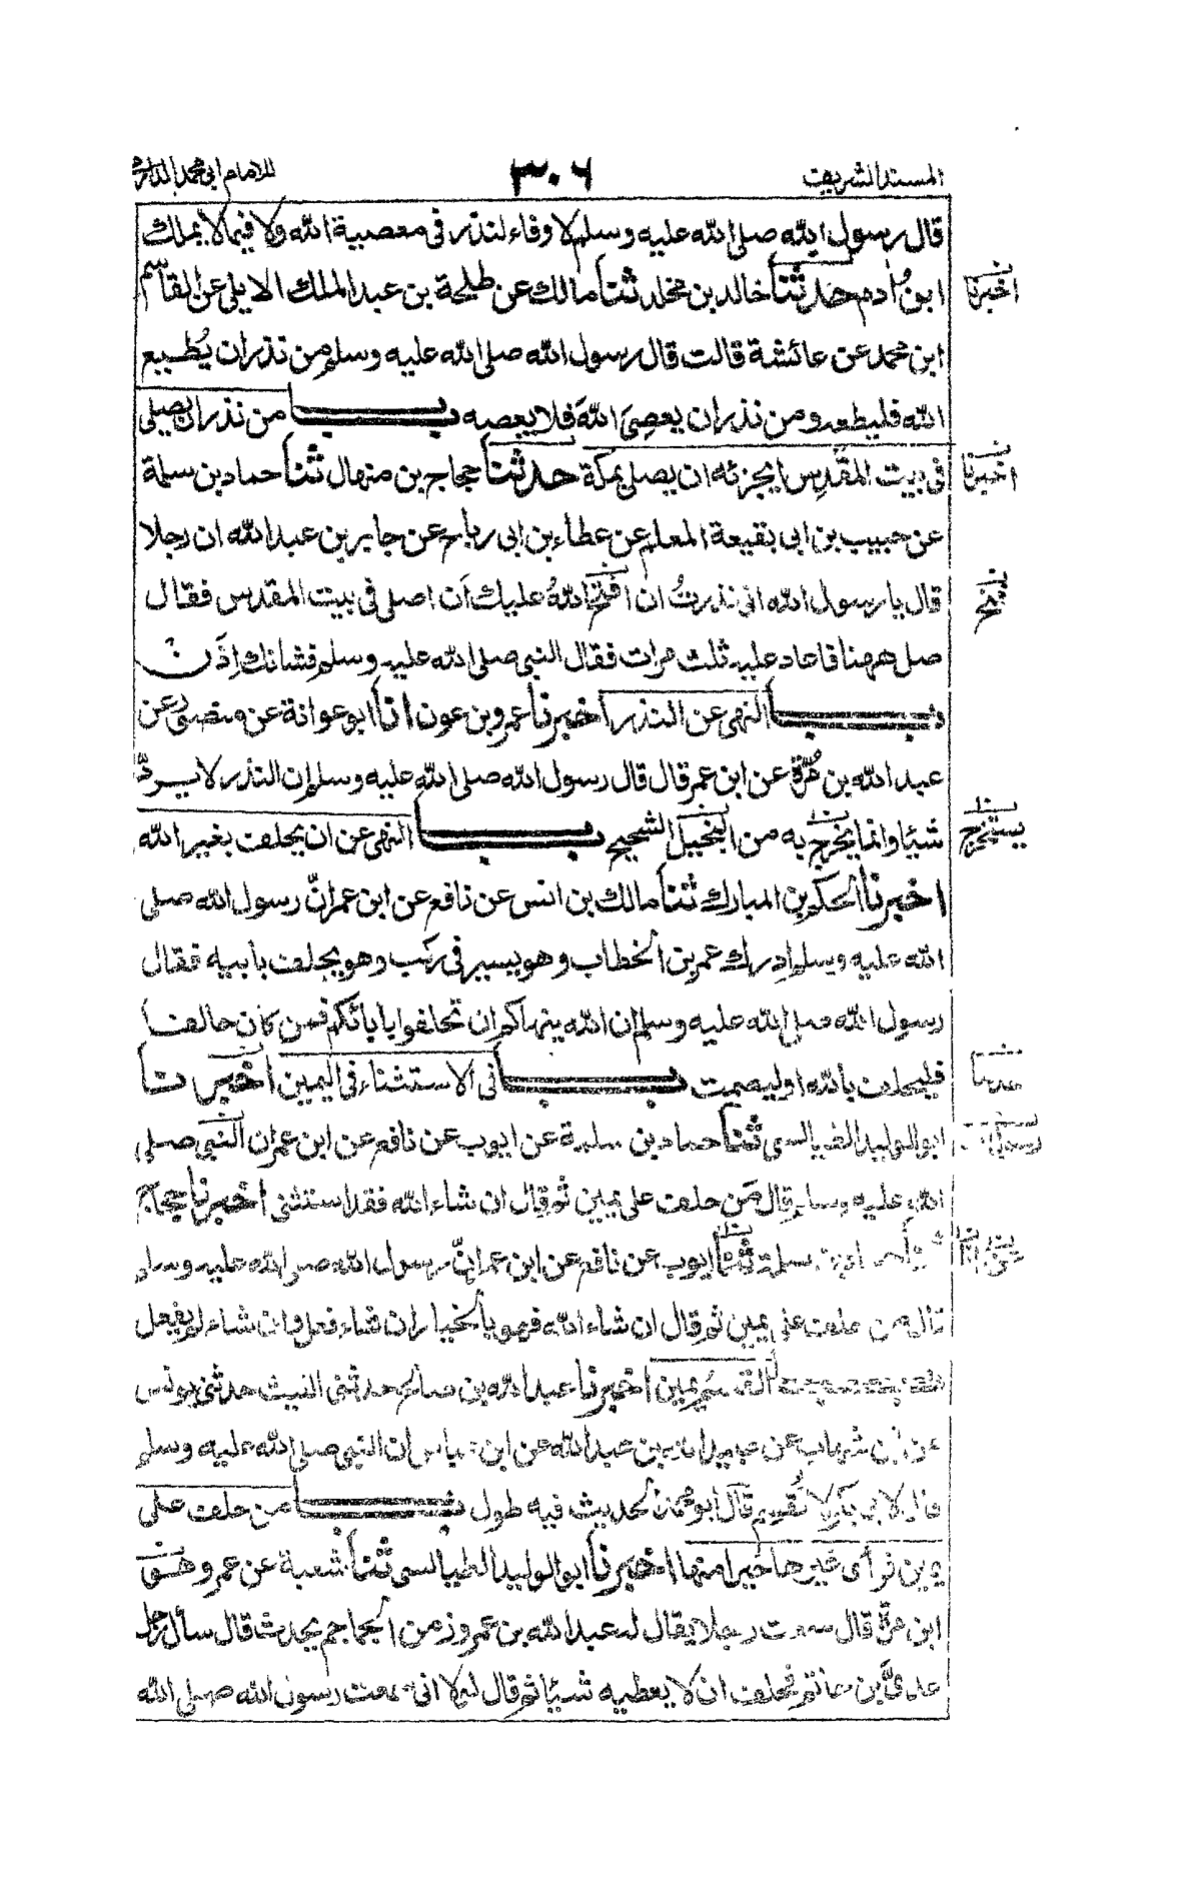 المسند الشريف ٣٠٦ للامام ابى محمد الدارمى
قال رسول الله صلى الله عليه وسلم لا وفاء لنذر فى معصية الله ولا فيما لا يملك
ابن اٰدم حدثنا خالد بن مخلد ثنا مالك عن طلحة بن عبد الملك الايلى عن القاسم
اخبرنا
ابن محمد عن عائشة قالت قال رسول الله صلى الله عليه وسلم من نذر ان يُطيع
الله فليطعه ومن نذر ان يعصِىَ اللهَ فلا يعصه باب من نذر ان يصلى
فى بيت المقدس ايجزئه ان يصلى بمكة حدثنا حجاج بن منهال ثنا حماد بن سلمة
اخبرنا
عن حبيب بن ابى بقيعة المعلم عن عطاء بن ابى رباح عن جابر بن عبد الله ان رجلا
قال يا رسول الله انى نذرتُ ان فتح اللهُ عليك اَن اصلى فى بيت المقدس فقال
صل ههنا فاعاد عليه ثلث مرات فقال النبى صلى الله عليه وسلم فشانك اِذَن
باب النهى عن النذر اخبرنا عمرو بن عون انا ابو عوانة عن منصور عن
عبد الله بن مُرّة عن ابن عمر قال قال رسول الله صلى الله عليه وسلم ان النذر لا يردّ
شيئا وانما يخرج به من البخيل الشحيح باب النهى عن ان يحلف بغير الله
يستخرج
اخبرنا الحكم بن المبارك ثنا مالك بن انس عن نافع عن ابن عمر انّ رسول الله صلى
الله عليه وسلم ادرك عمر بن الخطاب وهو يسير فى ركب وهو يحلف بابيه فقال
رسول الله صلى الله عليه وسلم ان الله ينهاكم ان تحلفوا بابائكم فمن كان حالفا
فليحلف بالله او ليصمت باب فى الاستثناء فى اليمين اخبرنا
حدثنا
ابو الوليد الطيالسى ثنا حماد بن سلمة عن ايوب عن نافع عن ابن عمر ان النبى صلى
رسول الله
الله عليه وسلم قال مَن حلف على يمين ثم قال ان شاء الله فقد استثنى اخبرنا حجاج
سلمة ثنا ايوب عن نافع عن ابن عمر انّ رسول الله صلى الله عليه وسلم
قال من حلف على يمين ثم قال ان شاء الله فهو بالخيار ان شاء فعل وان شاء لم يفعل
باب القسم يمين اخبرنا عبد الله بن صالح حدثنى الليث حدثنى يونس
عن ابن شهاب عن عبيد الله بن عبد الله عن ابن عباس ان النبى صلى الله عليه وسلم
قال لابى بكر لا تُقسم قال ابو محمد الحديث فيه طول باب من حلف على
يمين فرأى غيرها خيرا منها اخبرنا ابو الوليد الطيالسى ثنا شعبة عن عمرو هو
ابن مرة قال سمعت رجلا يقال له عبد الله بن عمرو زمن الجماجم يحدث قال سأل رجل
عدىَّ بن حاتم فحلف ان لا يعطيه شيئا ثم قال لولا انى سمعت رسول الله صلى الله